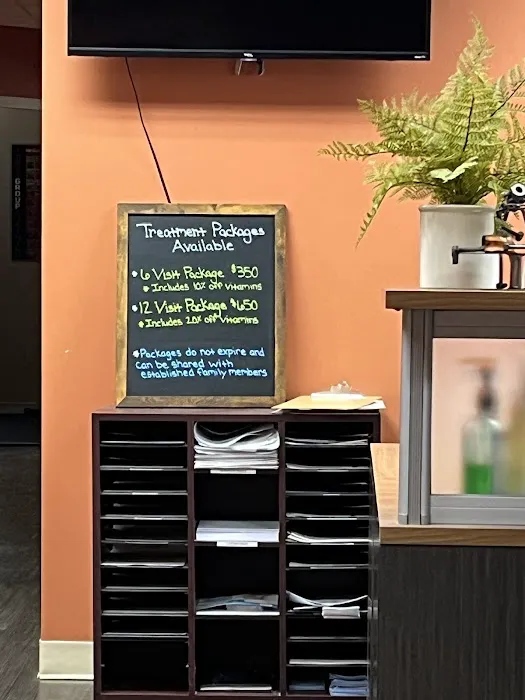 Treatment Packages
Available
6 Visit Package $350
Includes 10% off vitamins
12 Visit Package $650
Includes 20% off vitamins
Packages do not expire and
can be shared with
established family members
GROUP